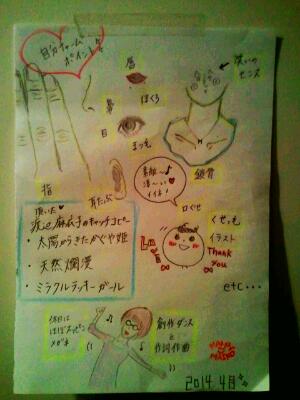 自分チャーム
ポイント
唇
笑いの
センス
鼻
ほくろ
目
まつ毛
鎖骨
指
耳たぶ
素敵〜♪
凄〜い♥
イイネ!
口ぐせ
くせっ毛
頂いた♥
渡辺麻衣子のキャッチコピー
・太陽からきたかぐや姫
・天然爛漫
・ミラクルラッキーガール
イラスト
Thank
You
etc…
休日は
ほぼスッピン
メガネ
創作ダンス
と
作詞作曲
2014.4月